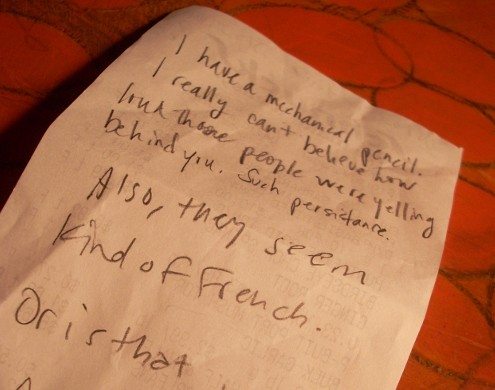 I have a mechanical pencil.
I really can't believe how
loud those people were yelling
behind you. Such persistance.
Also, they seem
kind of French.
Or is that